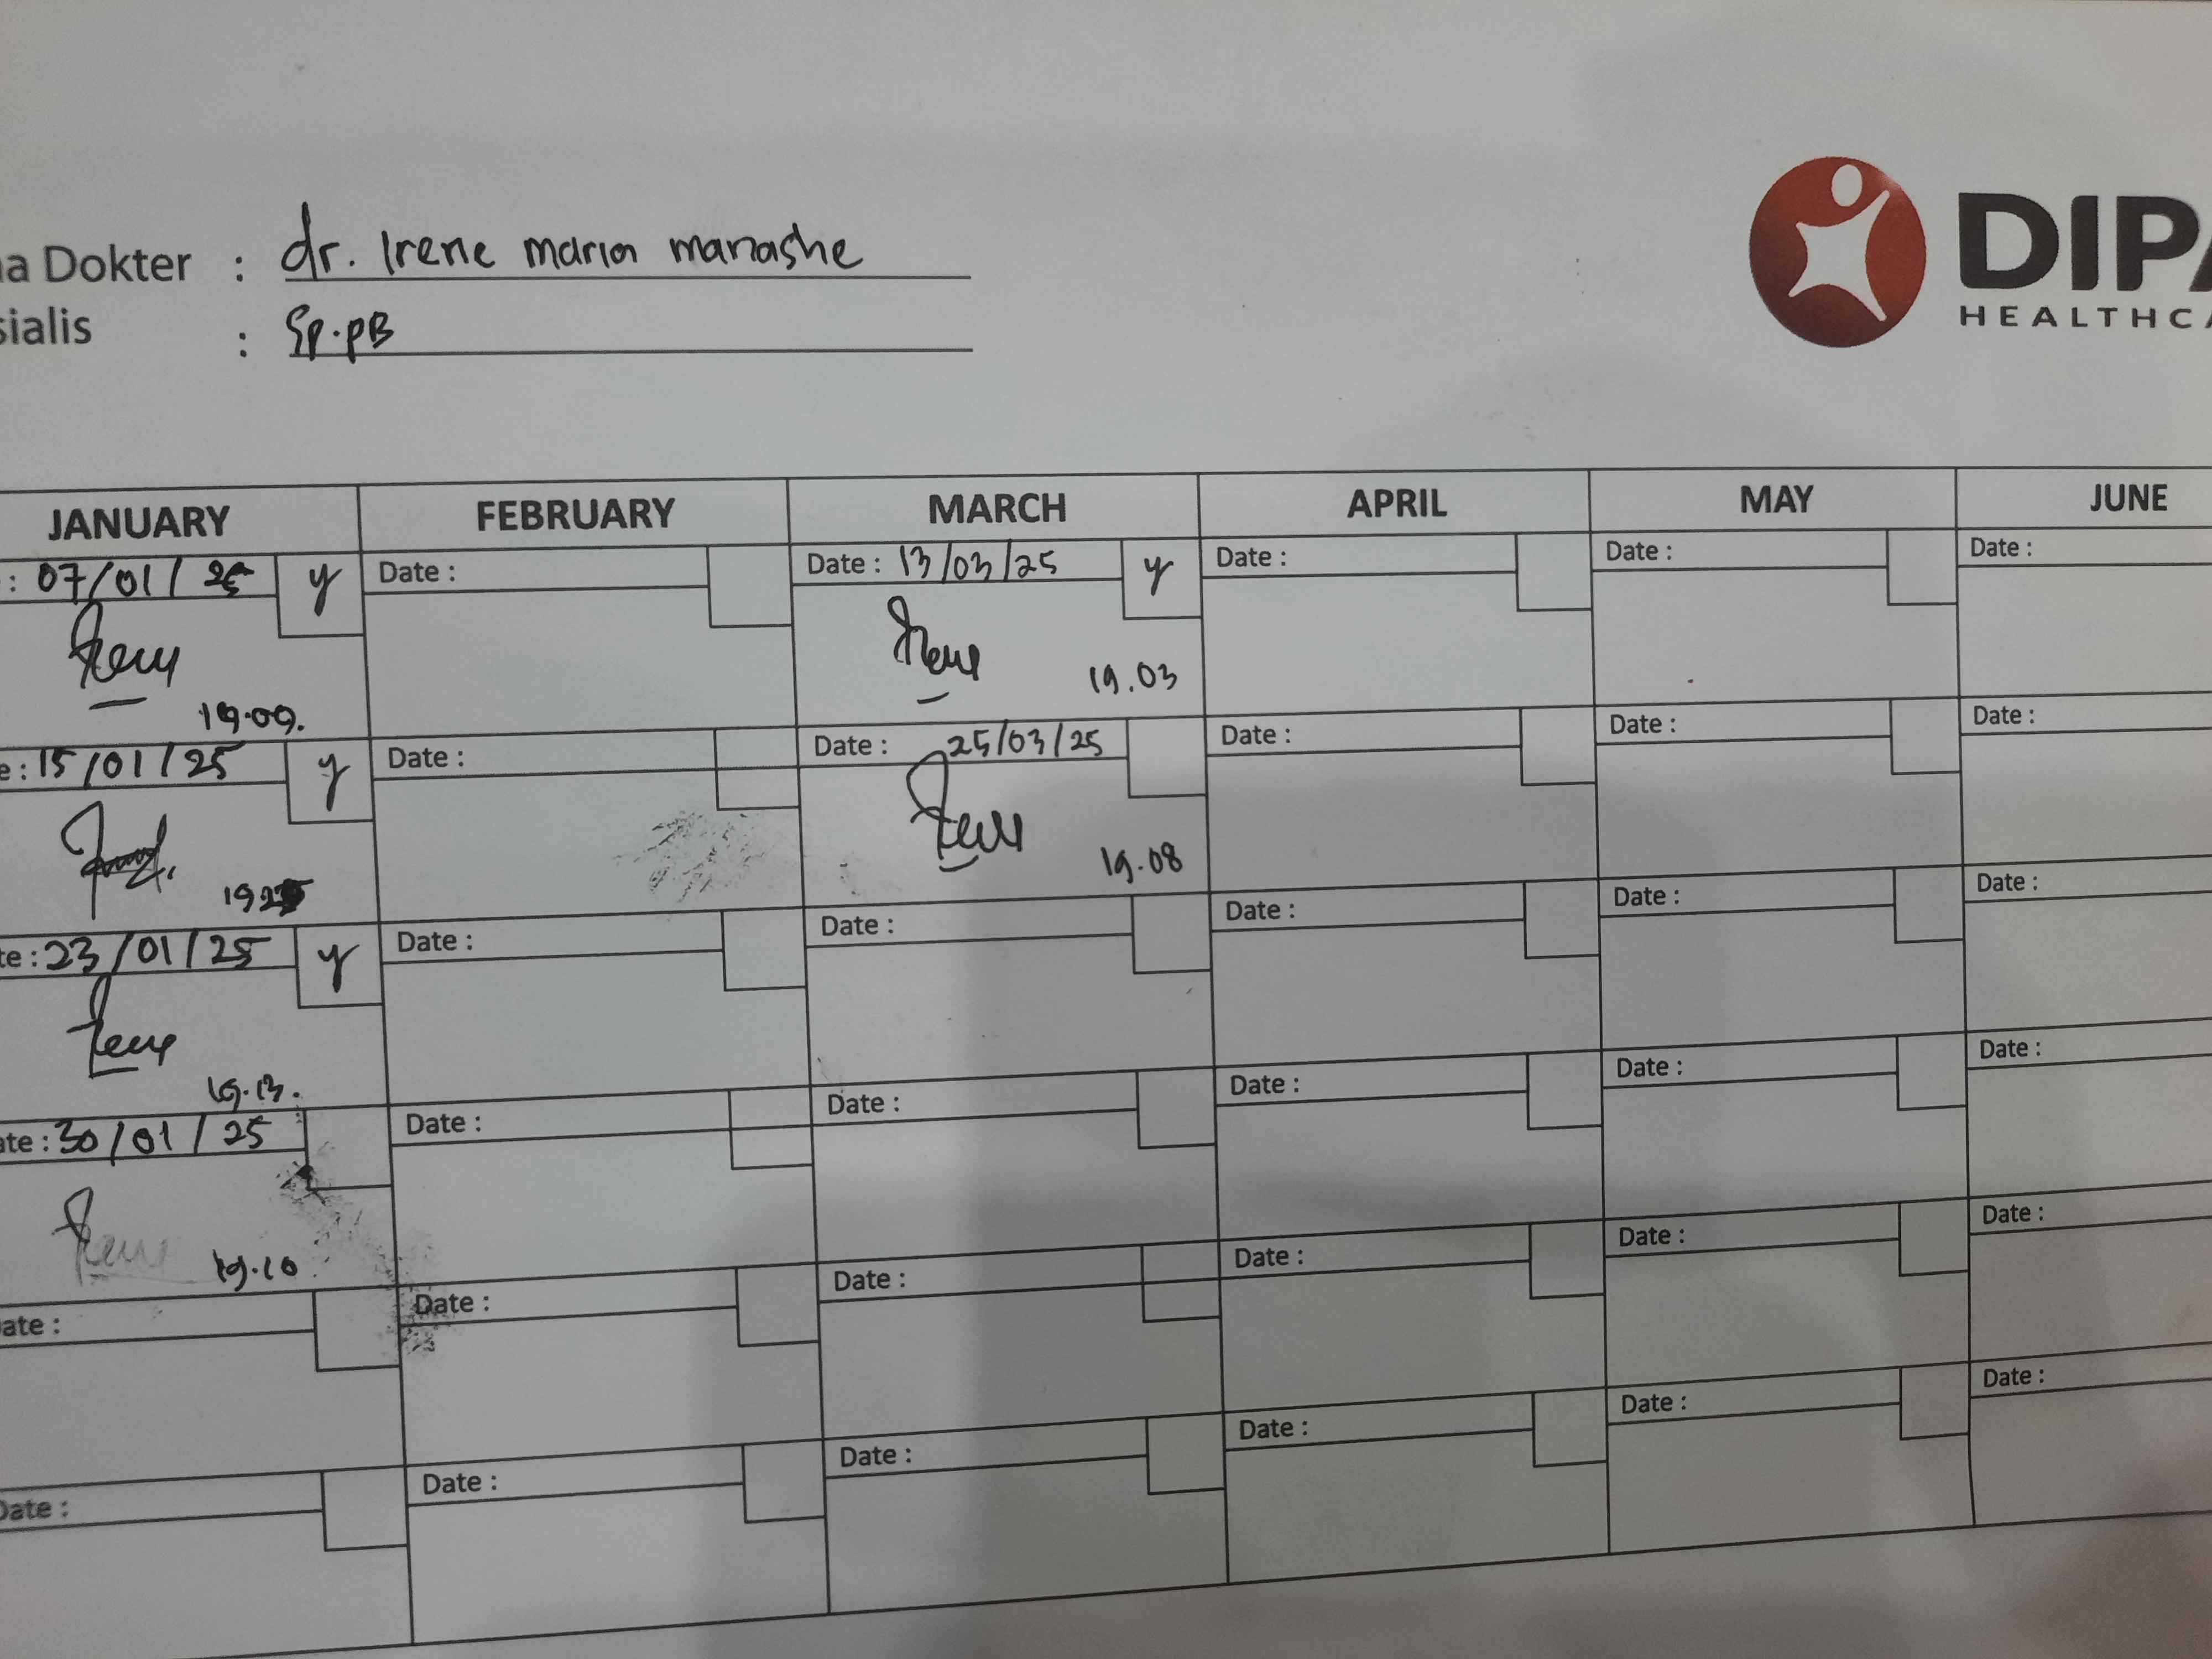 a Dokter : dr. Irene maria manashe
sialis : Sp.pB
DIPA
HEALTHCA
JANUARY FEBRUARY MARCH APRIL MAY JUNE
: 07/01/25 y Date : Date : 13/03/25 y Date : Date : Date :
19.09. 19.03
e : 15/01/25 y Date : Date : 25/03/25 Date : Date : Date :
19.08
te : 23/01/25 y Date : Date : Date : Date : Date :
19.13.
ate : 30/01/25 Date : Date : Date : Date : Date :
19.10
ate : Date : Date : Date : Date : Date :
Date : Date : Date : Date : Date : Date :